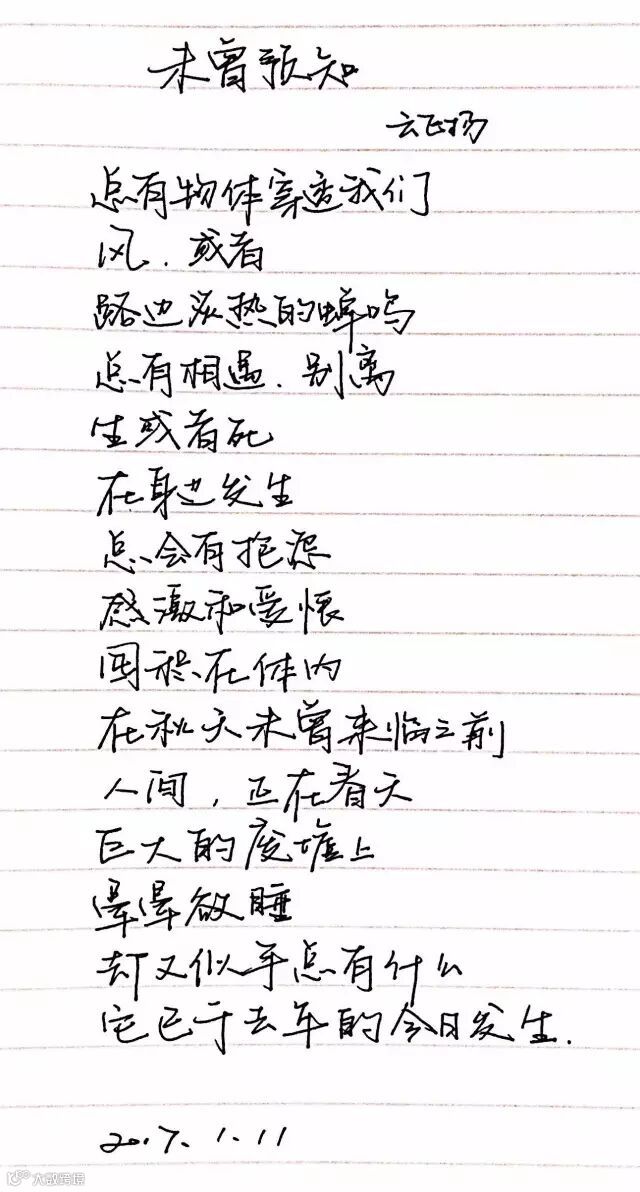 未曾预知
云飞扬
总有物体穿透我们
风.或者
路边灼热的蝉鸣
总有相遇.别离
生或者死
在身边发生
总会有抱怨
感激和爱恨
囤积在体内
在秋天未曾来临之前
人间，正在春天
巨大的废墟上
晕晕欲睡
却又似乎总有什么
它已于去年的今日发生.
2017.1.11
大数跨境